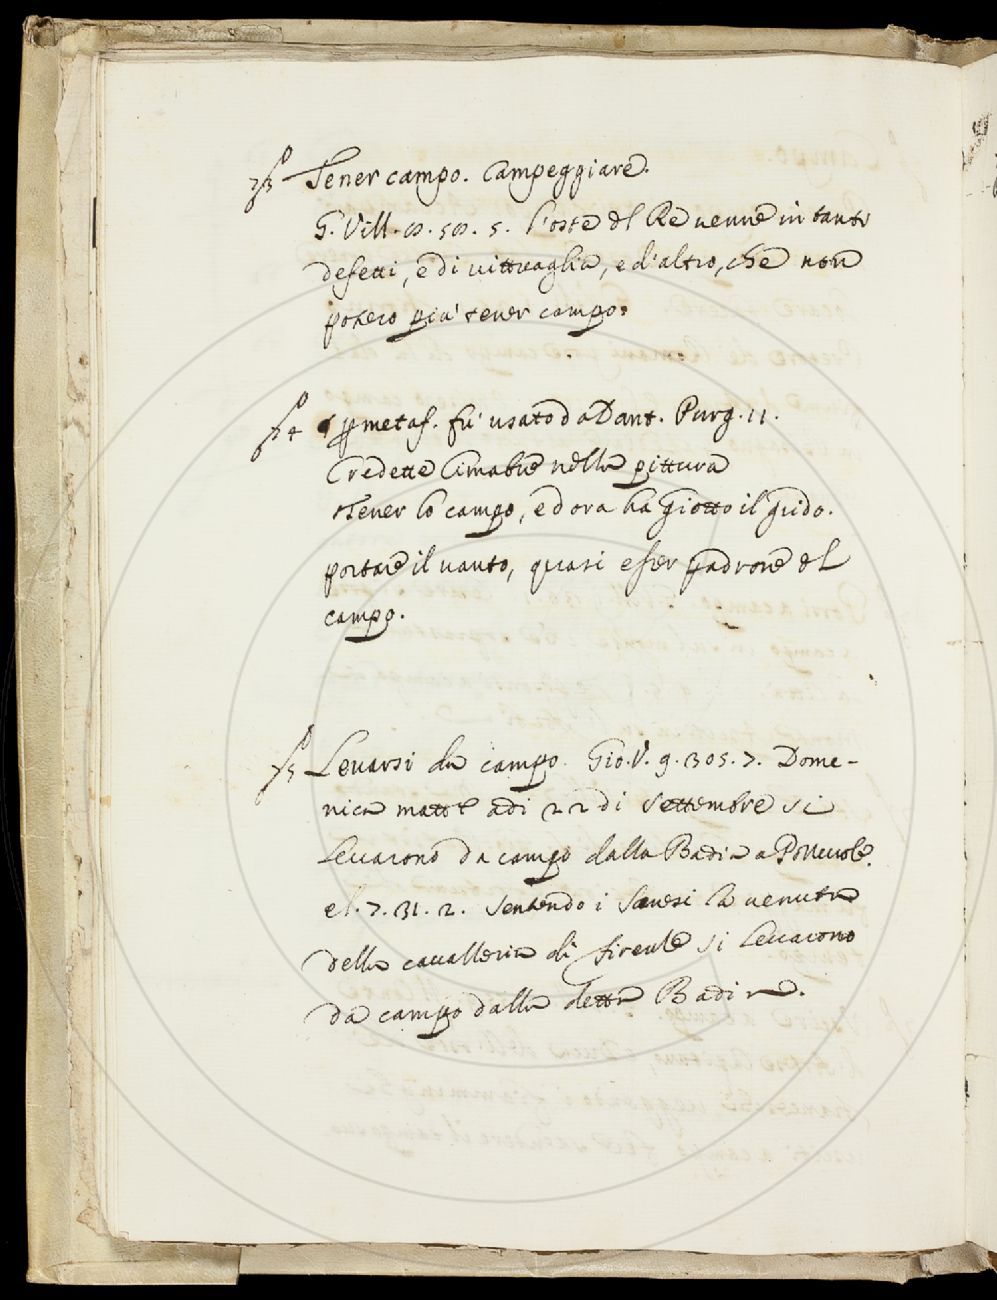 § 3 Tener campo. Campeggiare.
G. Vill. 8. 58. 5. l'oste dl Re venne in tanti
defetti, e di vittuaglia, e d'altro, che non
potero più tener campo.
§ 4 p metaf. fu' usato da Dant. Purg. 11.
Credette Cimabue nella pittura
Tener lo campo, ed ora ha Giotto il grido.
portare il vanto, quasi esser padrone dl
campo.
§ 5 Levarsi da campo. Gio. V. 9. 305. 7. Dome-
nica matt. adi 22 di Settembre si
levarono da campo dalla Badia a
el. 7. 31. 2. Sentendo i Sanesi la venuta
della cavalleria di firenze si levarono
da campo dalla detta Badia.